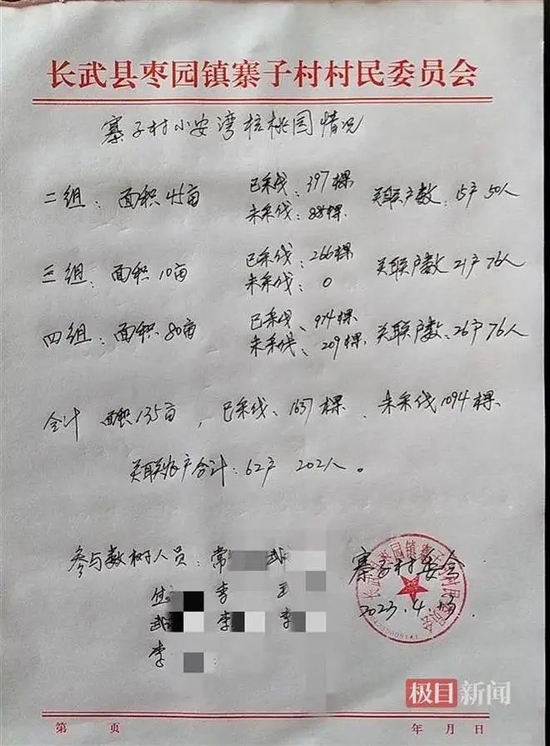 长武县枣园镇寨子村村民委员会
寨子村小安湾核桃园情况
二组：面积45亩 已采伐：397棵 关联户数：15户50人
未采伐：88棵
三组：面积10亩 已采伐：266棵 关联户数21户76人
未采伐：0
四组：面积80亩 已采伐：974棵 关联户数：26户76人
未采伐：209棵
合计 面积135亩，已采伐：1637棵，未采伐1094棵
关联农户合计：62户 202人。
参与数树人员：常 武
李 王
武 李 李
李
寨子村委会
2023.4.
极目新闻
第 页 年 月 日